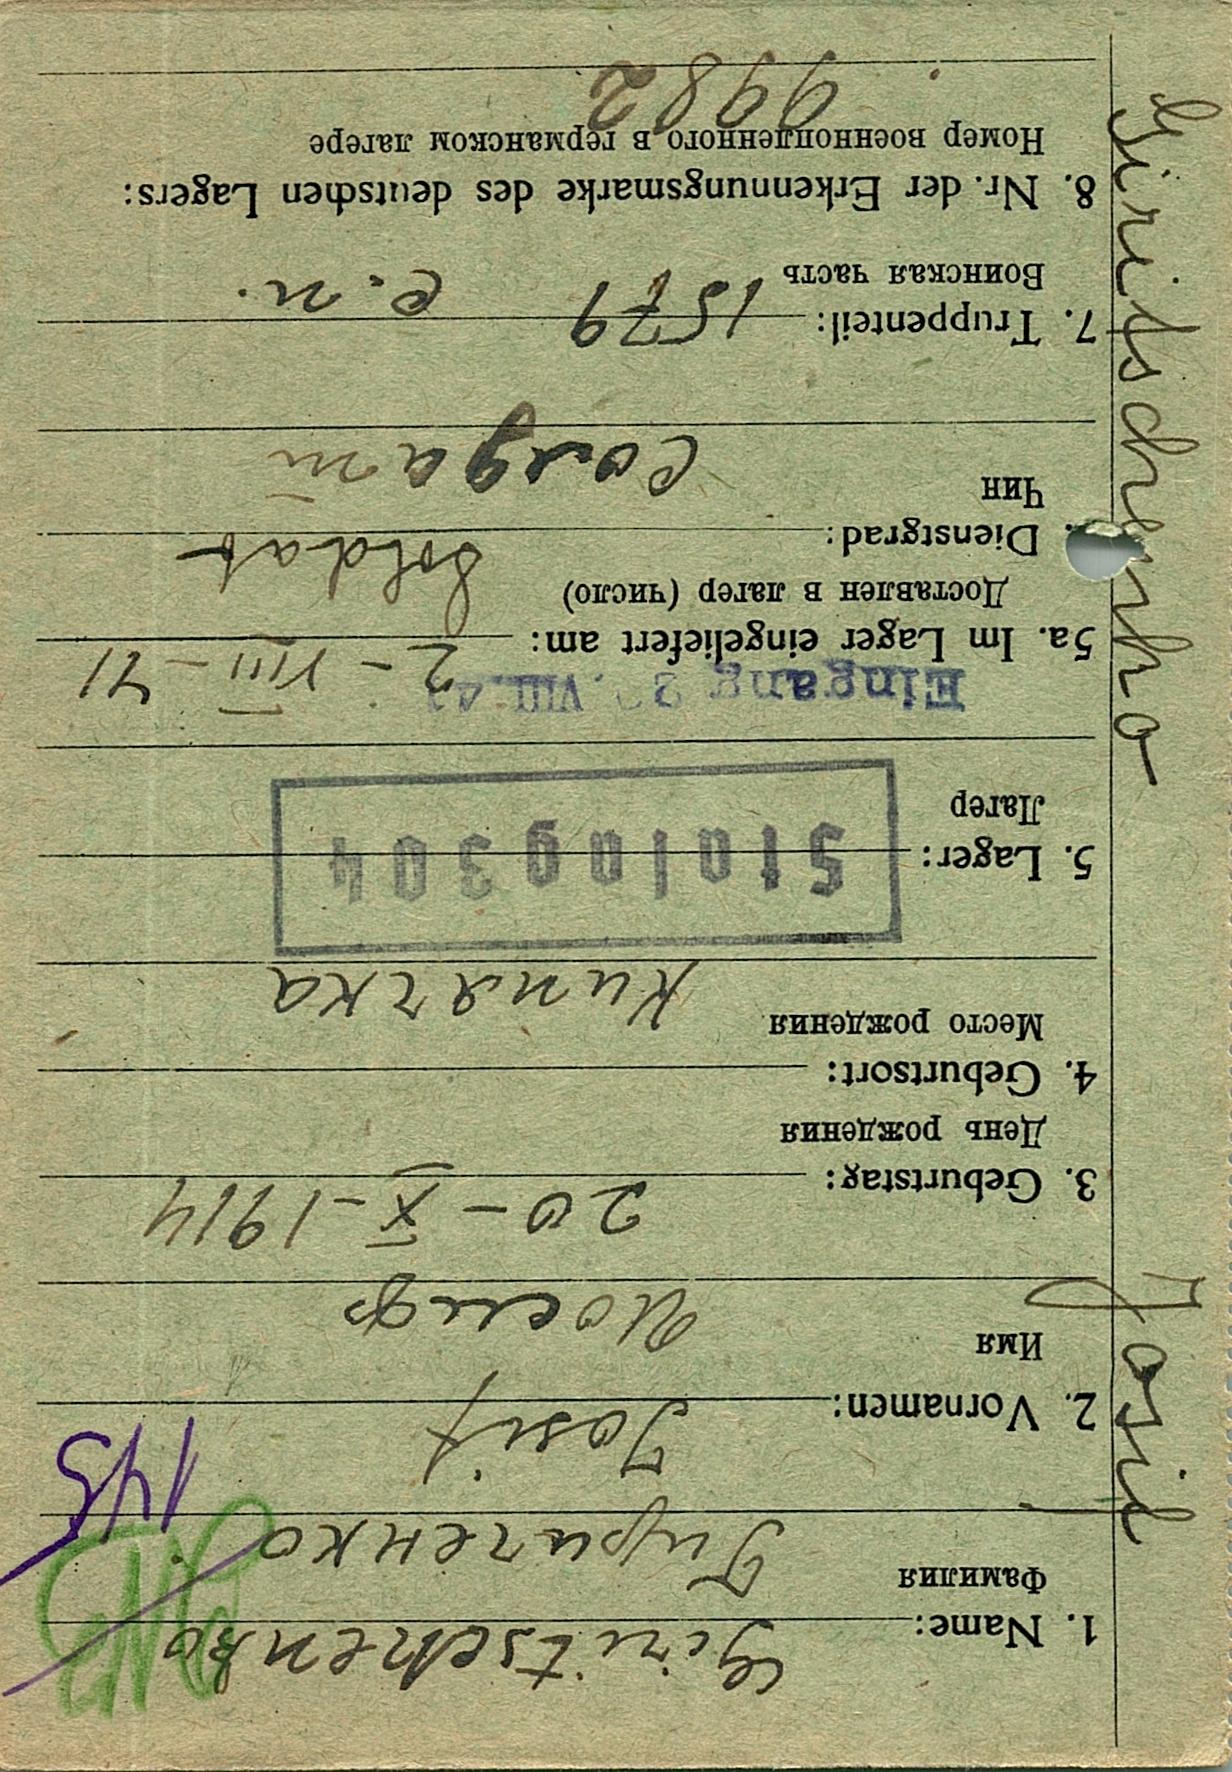 Giritschenko Josif
1. Name: Giritschenko
Фамилия Гириченко
145
2. Vornamen: Josif
Имя Иосиф
3. Geburtstag: 20-X-1914
День рождения
4. Geburtsort:
Место рождения Кипячка
5. Lager: Stalag 304
Лагер
Eingang 2 . VIII. 41
5a. Im Lager eingeliefert am: 2-VIII-41
Доставлен в лагер (число)
Dienstgrad: Soldat
Чин Солдат
7. Truppenteil: 1579 с. п.
Воинская часть
8. Nr. der Erkennungsmarke des deutschen Lagers:
Номер военнопленного в германском лагере
9982